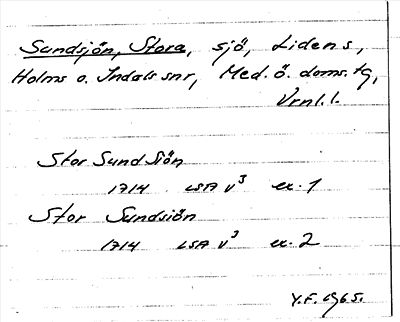 Sundsjön, Stora, sjö, Lidens,
Holms o. Indals snr, Med. ö. doms.tg,
Vrnl. l.
Stor Sund Siön
1714 LSA V³ ex. 1
Stor Sundsiön
1714 LSA V³ ex. 2
Y.F. 1965.